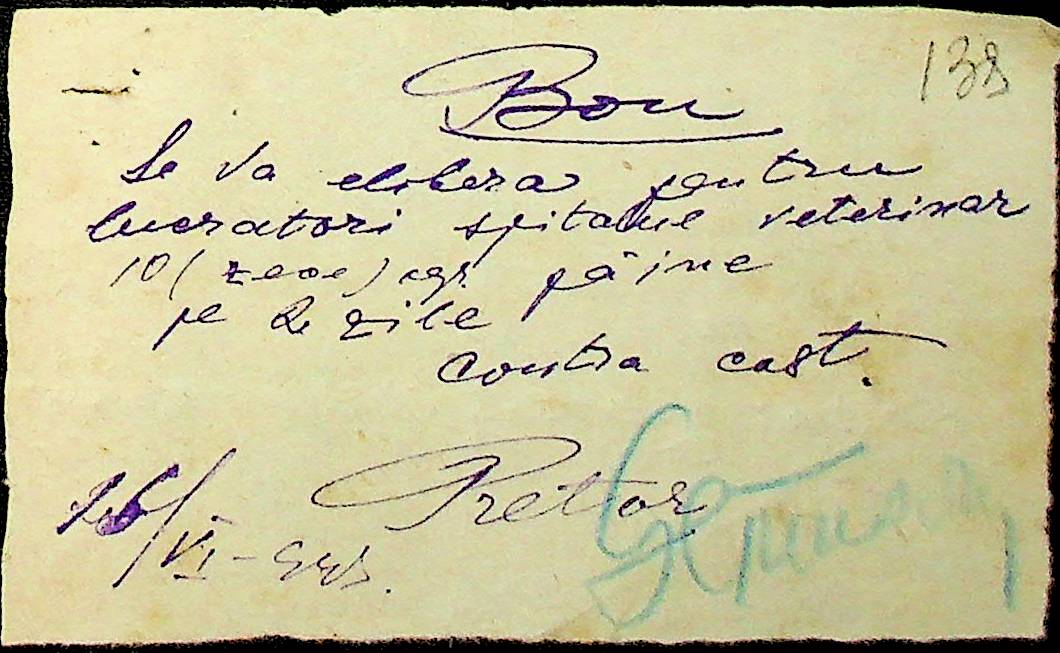 138
Bon
Se va elibera pentru
lucratori spitalue veterinar
10 (zece) kgr. pâine
pe 2 zile
contra cost.
Pretor
16/VI-943.